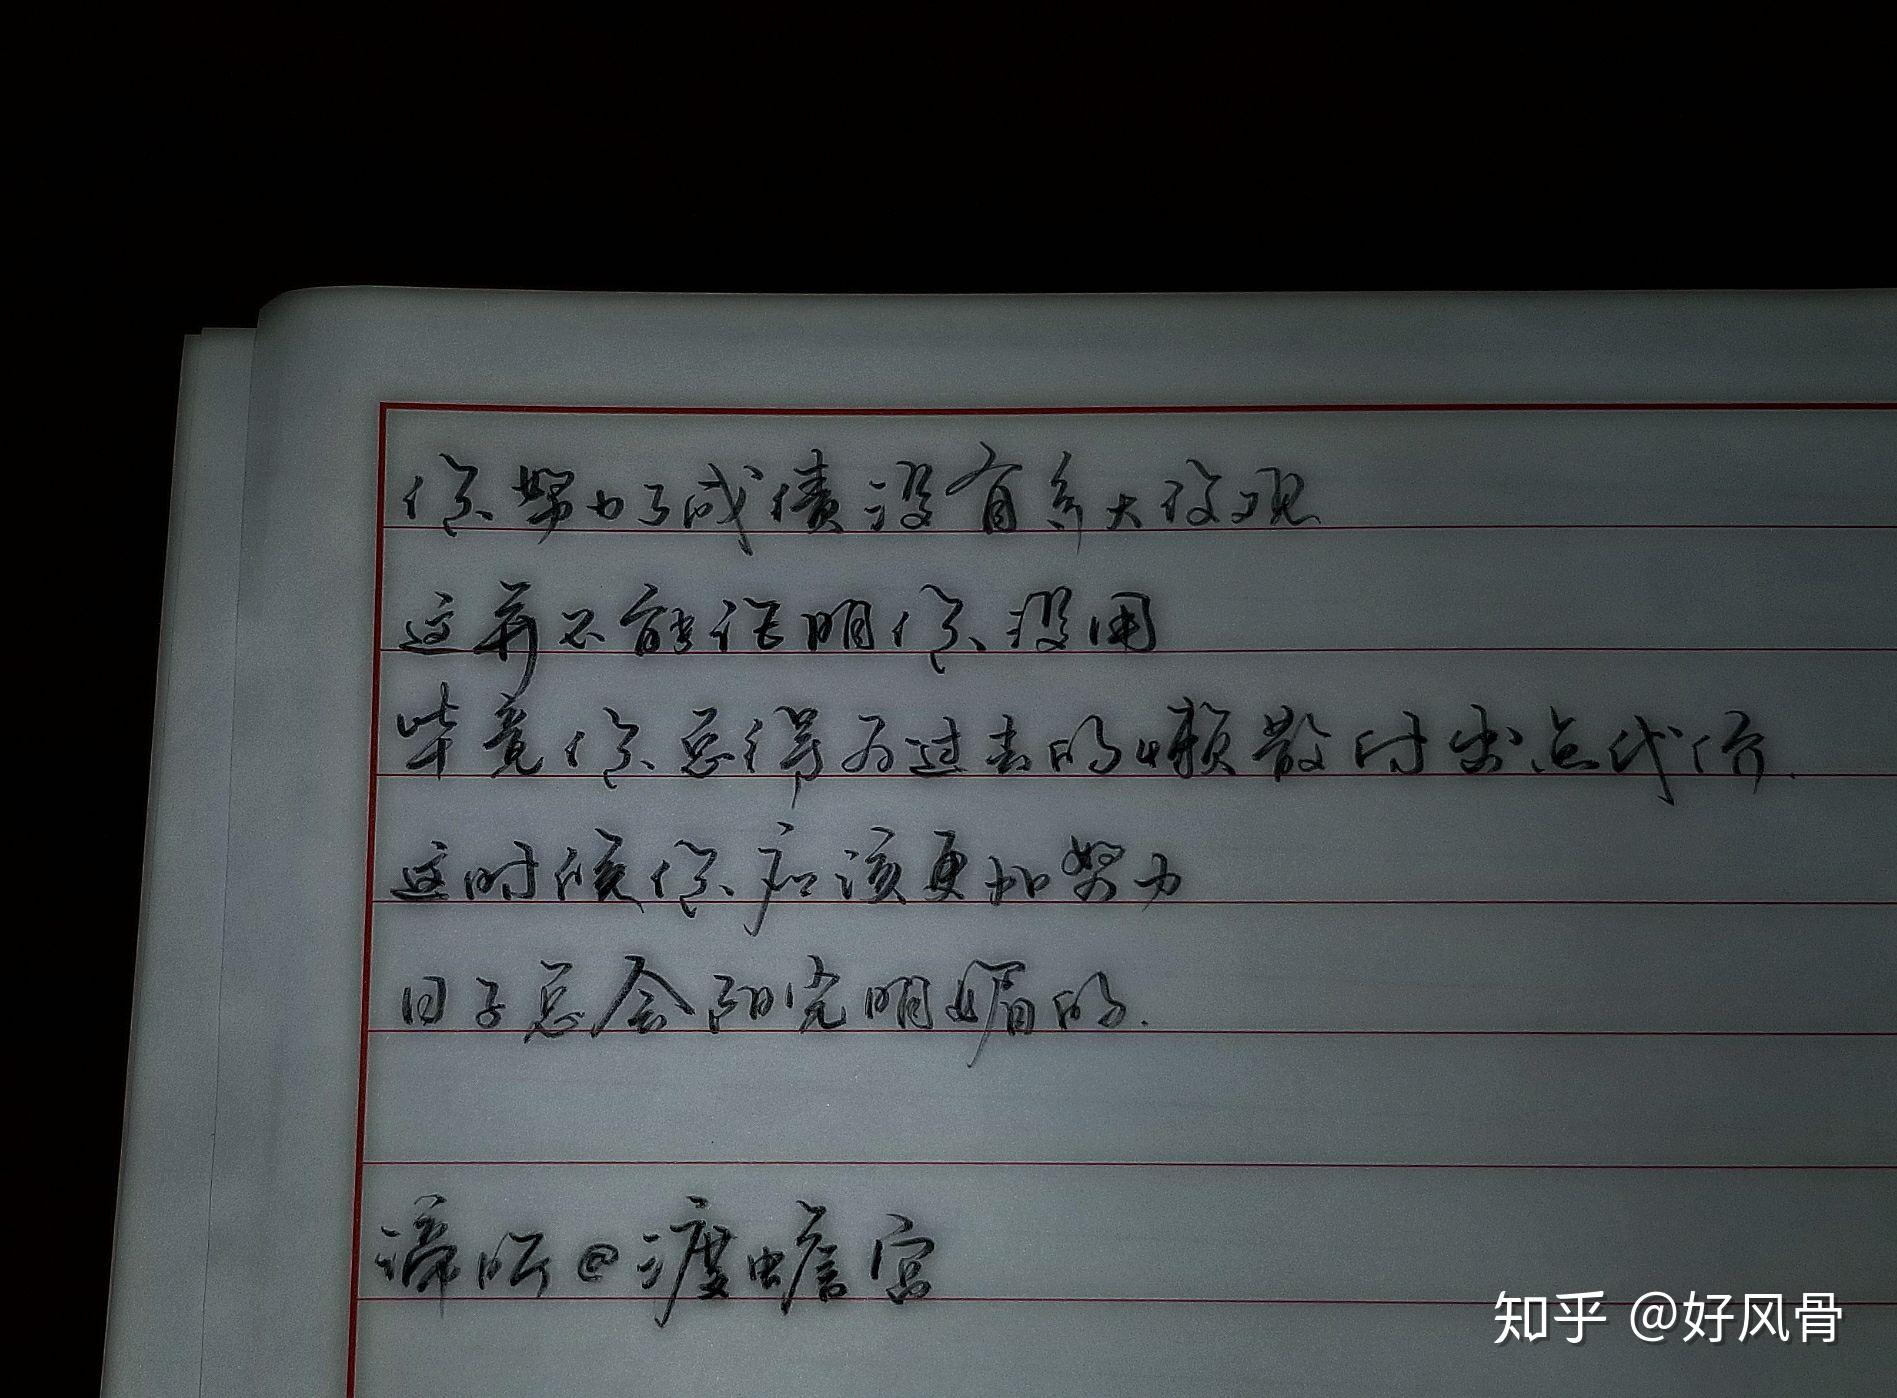 你努力了成绩没有多大改观
这并不能证明你没用
毕竟你总得为过去的懒散付出点代价.
这时候你应该更加努力
日子总会阳光明媚的.
谛听@渡蟾宫
知乎 @好风骨